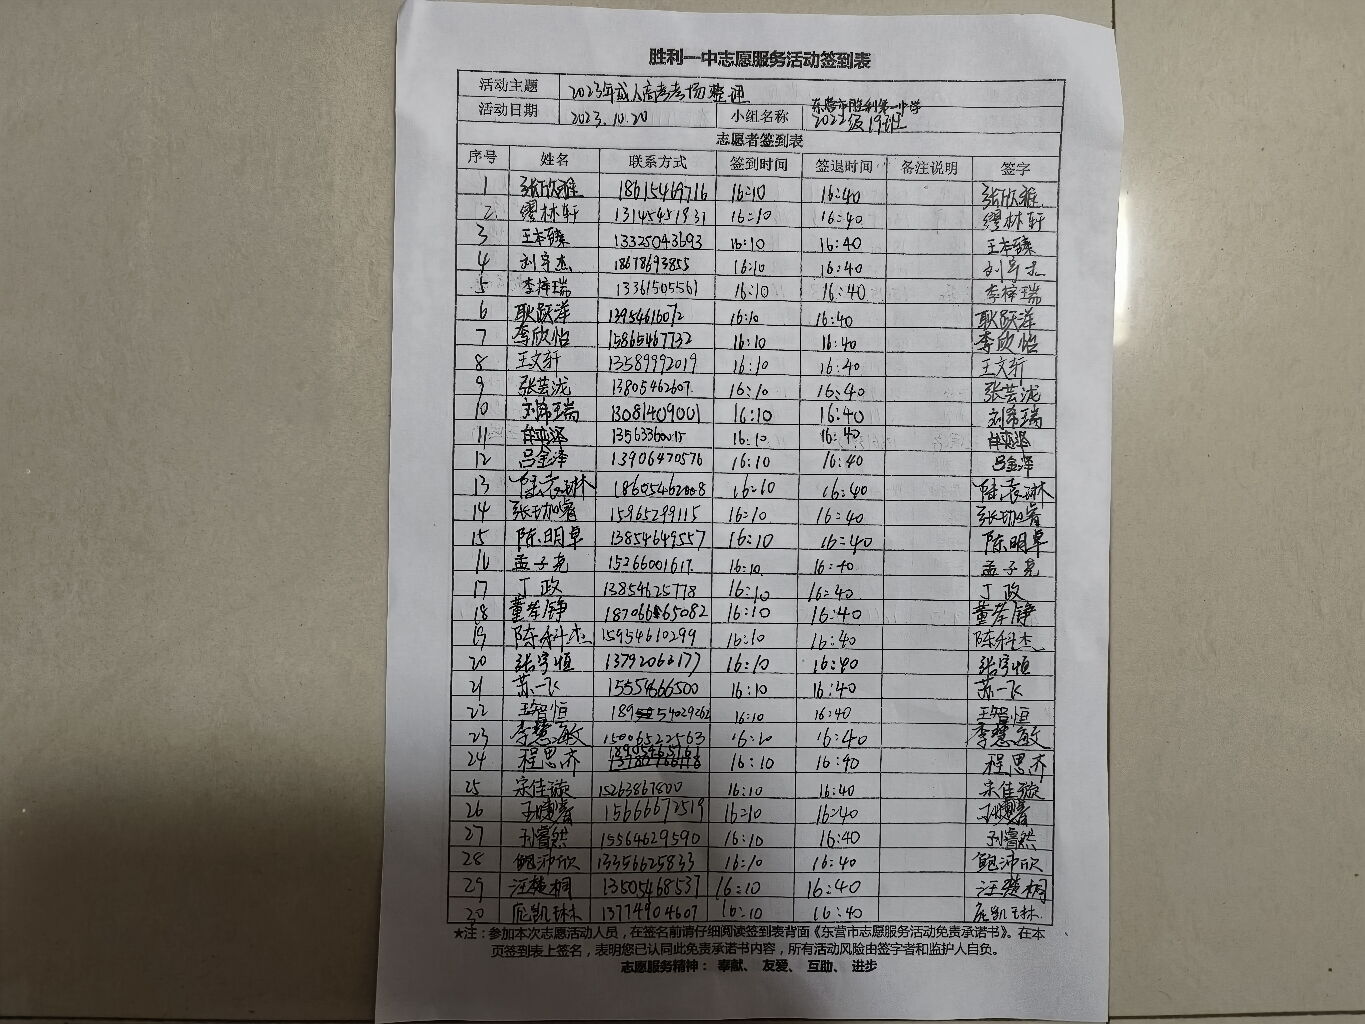 胜利一中志愿服务活动签到表
活动主题 2023年成人高考考场整理
活动日期 2023.10.20 小组名称 东营市胜利第一中学 2022级19班
志愿者签到表
序号 姓名 联系方式 签到时间 签退时间 备注说明 签字
1 张欣雅 18615469716 16:10 16:40 张欣雅
2 缪林轩 13145451831 16:10 16:40 缪林轩
3 王本臻 13325043693 16:10 16:40 王本臻
4 刘宇杰 18678693855 16:10 16:40 刘宇杰
5 李梓瑞 13361505561 16:10 16:40 李梓瑞
6 耿跃洋 13954616012 16:10 16:40 耿跃洋
7 李欣怡 15865467732 16:10 16:40 李欣怡
8 王文轩 13589992019 16:10 16:40 王文轩
9 张芸泷 13805462607 16:10 16:40 张芸泷
10 13081409001 16:10 16:40
11 16:10 16:40
12 吕金泽 13906470576 16:10 16:40 吕金泽
13 16:10 16:40
14 张珈睿 15965299115 16:10 16:40 张珈睿
15 陈明卓 13854649557 16:10 16:40 陈明卓
16 孟子尧 15266001617 16:10 16:40 孟子尧
17 丁政 13854625778 16:10 16:40 丁政
18 16:10 16:40
19 陈科杰 15954610299 16:10 16:40 陈科杰
20 张宇恒 13792062177 16:10 16:40 张宇恒
21 苏一飞 15554666500 16:10 16:40 苏一飞
22 王智恒 16:10 16:40 王智恒
23 李慧敏 15006522563 16:10 16:40 李慧敏
24 程思齐 18905465161 16:10 16:40 程思齐
25 宋佳璇 15263867800 16:10 16:40 宋佳璇
26 15666672519 16:10 16:40
27 孙睿然 15564629590 16:10 16:40 孙睿然
28 鲍沛欣 13356625833 16:10 16:40 鲍沛欣
29 汪楚桐 13505468537 16:10 16:40 汪楚桐
30 庞凯琳 13774904607 16:10 16:40 庞凯琳
★注：参加本次志愿活动人员，在签名前请仔细阅读签到表背面《东营市志愿服务活动免责承诺书》。在本
页签到表上签名，表明您已认同此免责承诺书内容，所有活动风险由签字者和监护人自负。
志愿服务精神： 奉献、 友爱、 互助、 进步